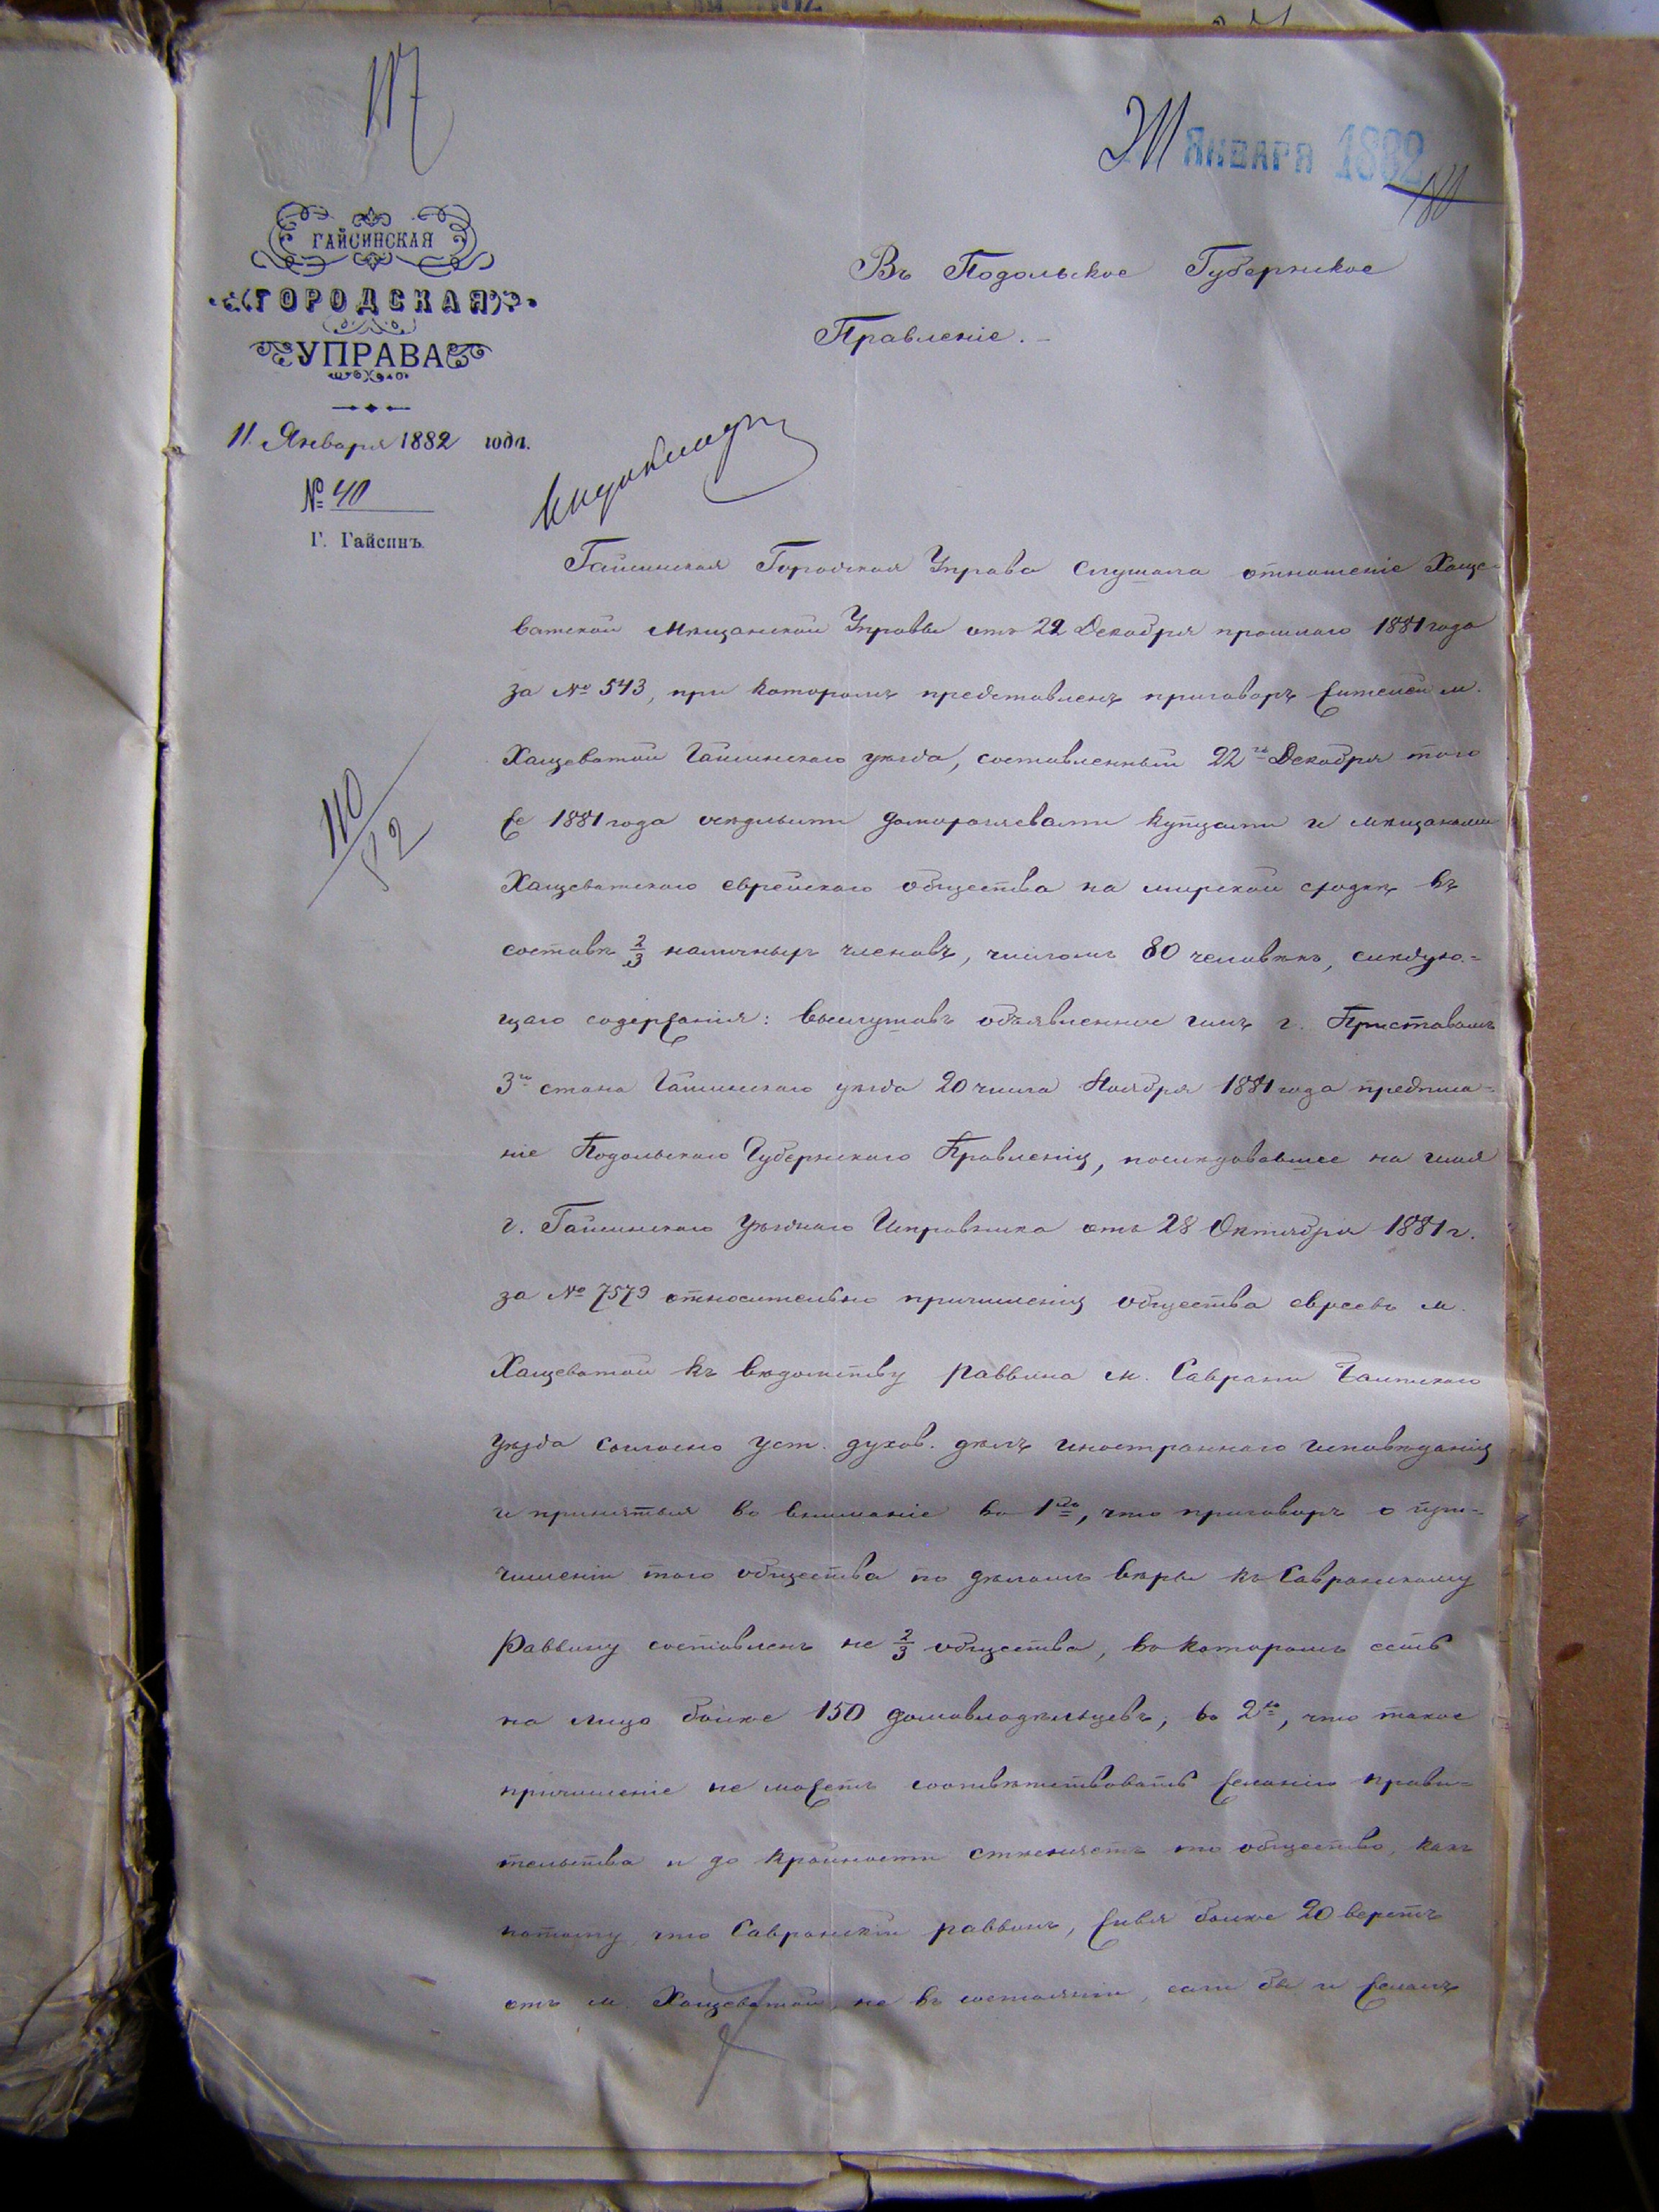 117
21 ЯНВАРЯ 1882
180
ГАЙСИНСКАЯ
ГОРОДСКАЯ
УПРАВА
11. Января 1882 года.
№ 40
Г. Гайсинъ.
Въ Подольское Губернское
Правленіе.-
Гайсинская Городская Управа слушала отношеніе Хаще-
ватской Мѣщанской Управы отъ 22 Декабря прошлаго 1881 года
за № 543, при которомъ представленъ приговоръ жителей м.
Хащеватой Гайсинскаго уѣзда, составленный 22го Декабря того
же 1881 года осѣдлыми домохозяевами купцами и мѣщанами
Хащеватскаго еврейскаго общества на мирской сходкѣ въ
составѣ 2/3 наличныхъ членовъ, числомъ 80 человѣкъ, слѣдую-
щаго содержанія: выслушавъ объявленное имъ г. Приставомъ
3го стана Гайсинскаго уѣзда 20 числа Ноября 1881 года предписа-
ніе Подольскаго Губернскаго Правленія, послѣдовавшее на имя
г. Гайсинскаго Уѣзднаго Исправника отъ 28 Октября 1881 г.
за № 7579 относительно причисленія общества евреевъ м.
Хащеватой къ вѣдомству раввина м. Саврани Балтскаго
уѣзда согласно уст. духов. дѣлъ иностраннаго исповѣданія
и принятія во вниманіе во 1хъ, что приговоръ о при-
численіи того общества по дѣламъ вѣры къ Савранскому
раввину составленъ не 2/3 общества, въ которомъ есть
на лицо болѣе 150 домовладѣльцевъ; во 2хъ, что такое
причисленіе не можетъ соотвѣтствовать желанію прави-
тельства и до крайности стѣсняетъ то общество, какъ
потому что Савранскій раввинъ, живя болѣе 20 верстъ
отъ м. Хащеватой, не въ состояніи, если бы и желалъ
110/52